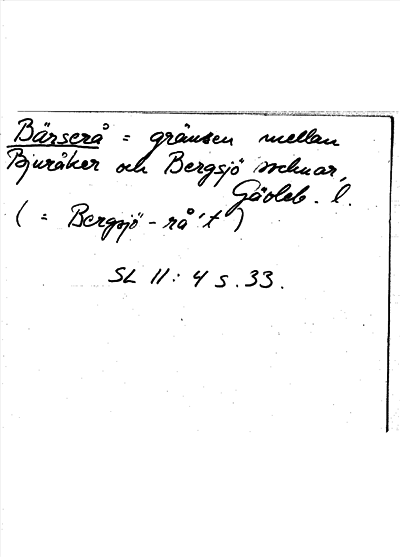 Bärserå = gränsen mellan
Bjuråker och Bergsjö socknar,
Gävleb. l.
( = Bergsjö - rå't )
SL 11: 4 s. 33.